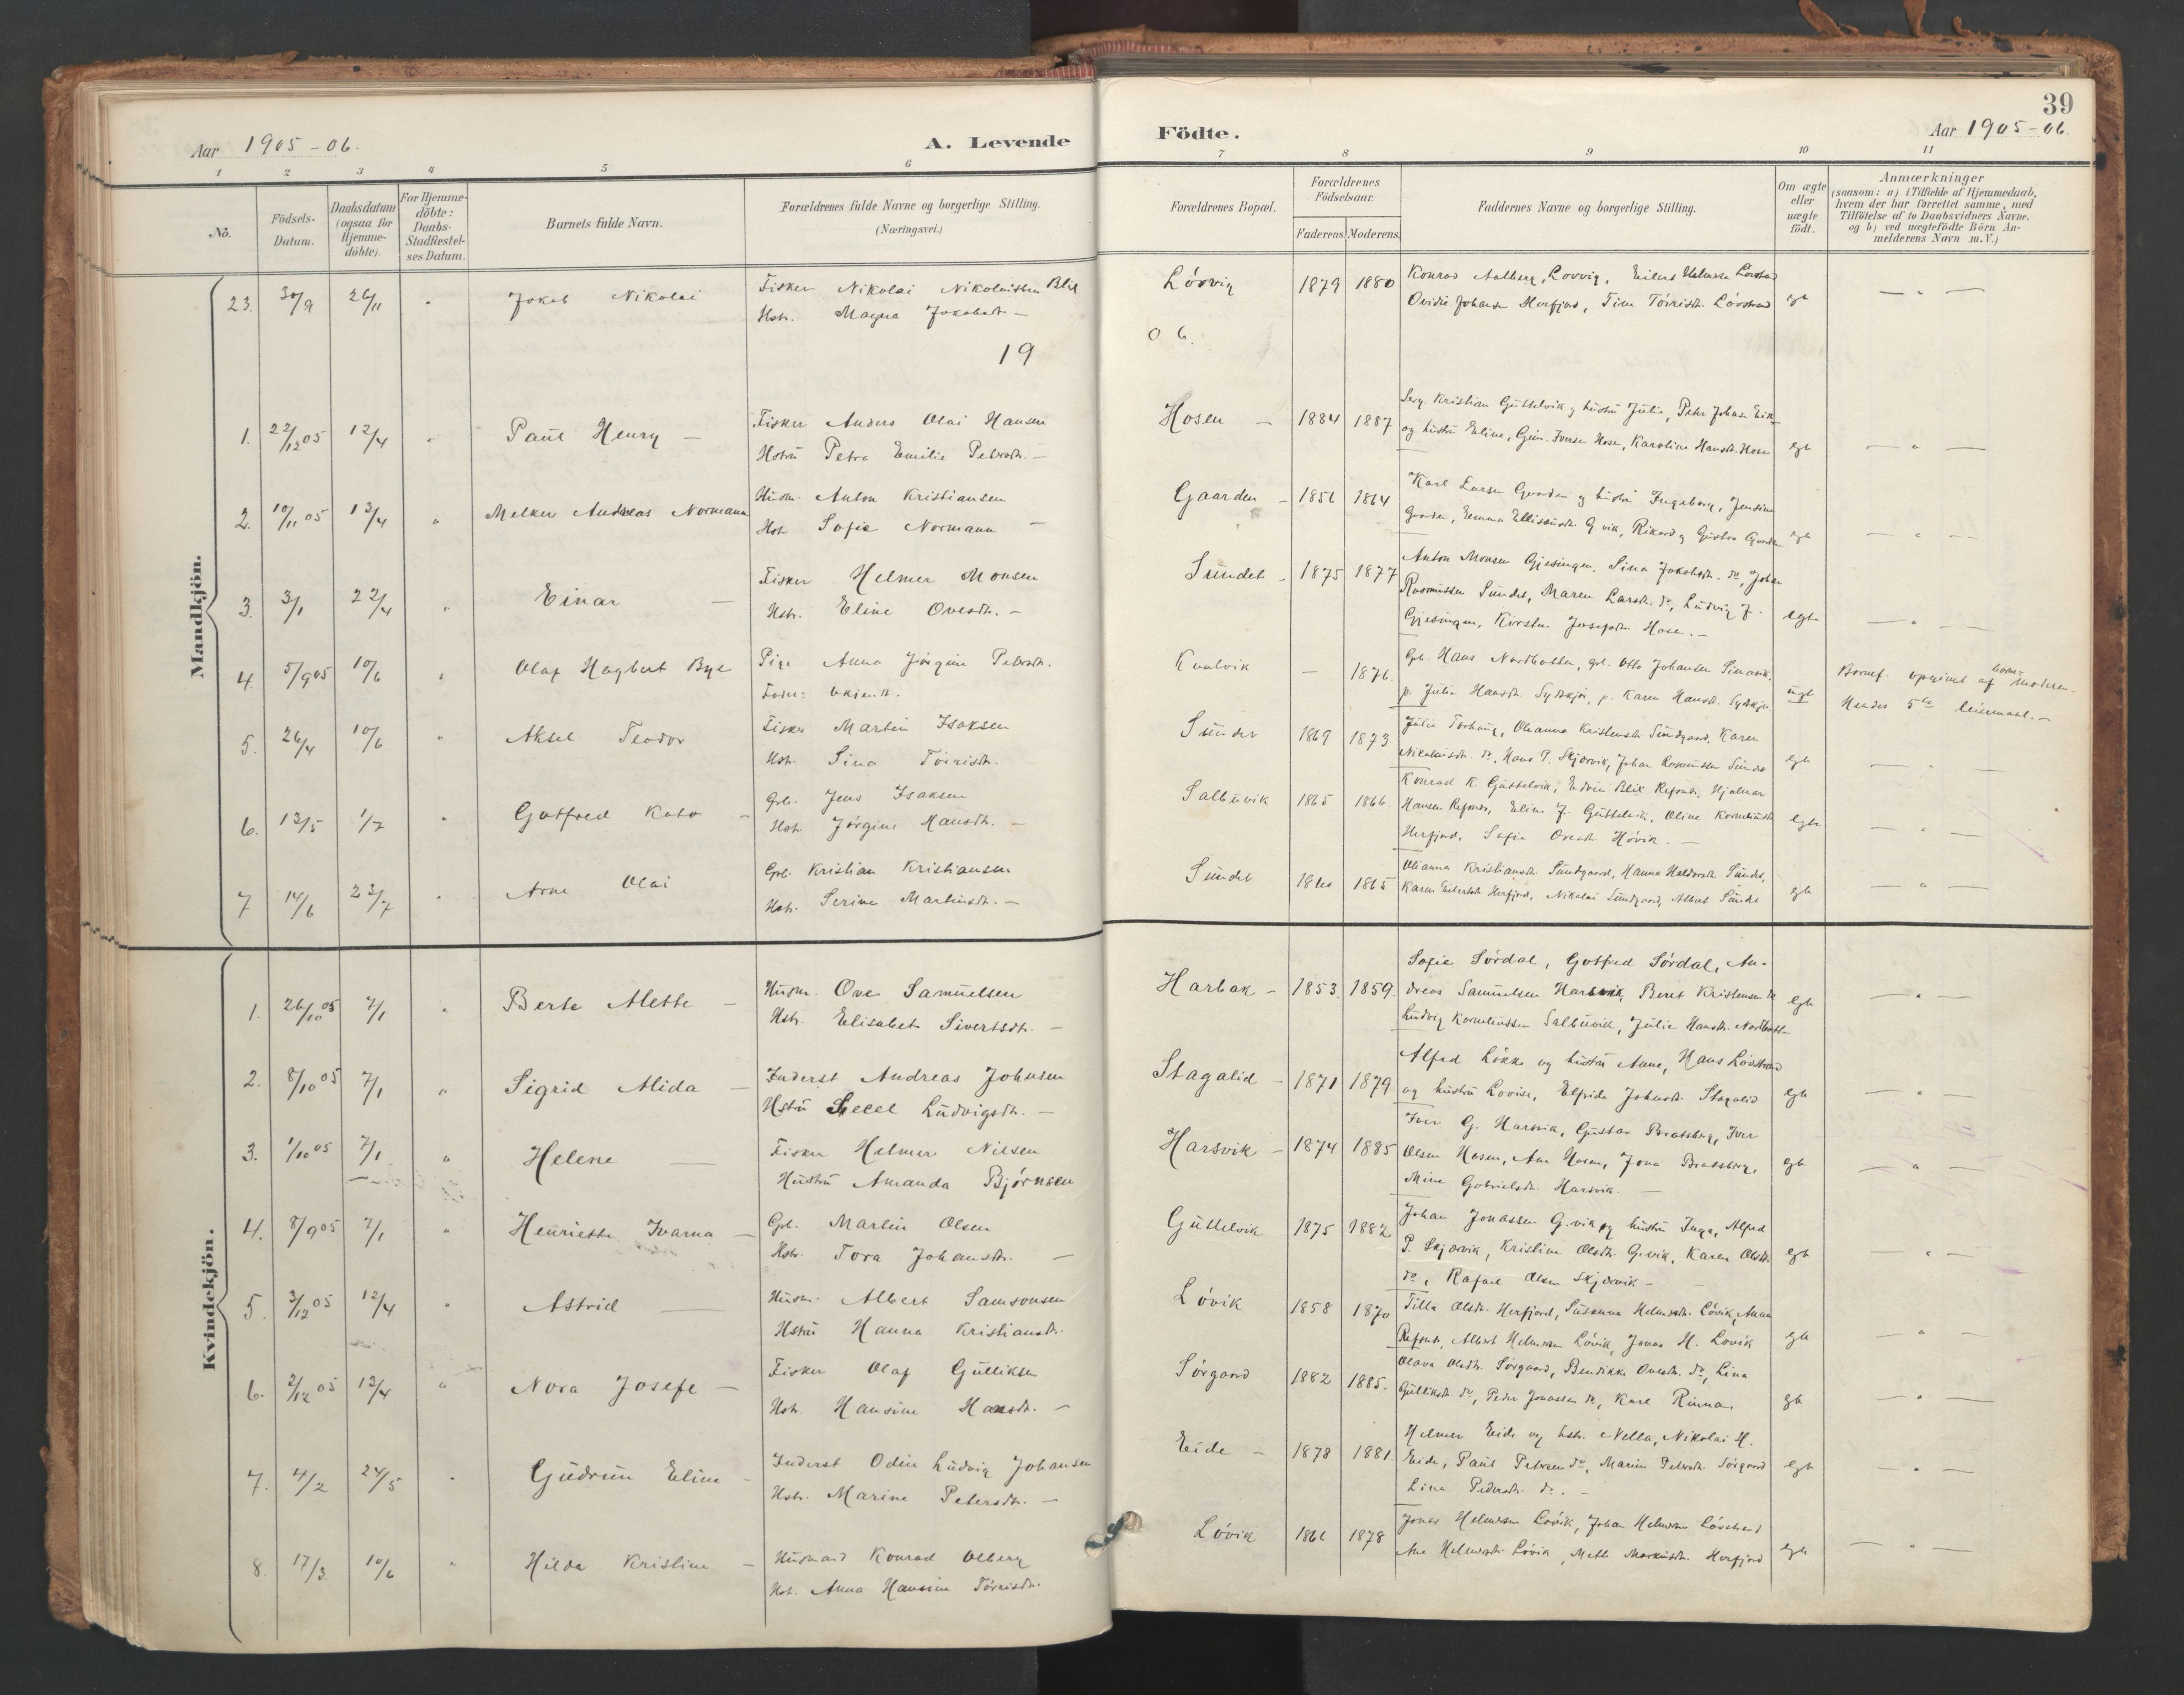 39
Aar 1905-06.
A. Levende
Födte.
Aar 1905-06.
1 2 3 4 5 6 7 8 9 10 11
No.
Födsels-Datum.
Daabsdatum (ogsaa for Hjemme-döbte).
For Hjemme-döbte: Daabs-Stadfæstel-ses Datum.
Barnets fulde Navn.
Forældrenes fulde Navne og borgerlige Stilling.
(Næringsvei.)
Forældrenes Bopæl.
Forældrenes Födselsaar.
Faderens. Moderens.
Faddernes Navne og borgerlige Stilling.
Om ægte eller uægte födt.
Anmærkninger
(saasom: a) i Tilfælde af Hjemmedaab,
hvem der har forrettet samme, med
Tilföielse af to Daabsvidners Navne.
og b) ved uægtefödte Börn An-
melderens Navn m.V.)
Mandkjön.
23. 30/9 26/11 " Jakob Nikolai
Fisker Nikolai Nikolaisen
Hstr. Magna Jakobsdt. —
Lövvig 1879 1880
Konrad Aalberg, Lovvig, Eilert
Johansen Herfjord, Tina
egt — " —
19
06.
1. 22/12 05 12/4 " Paul Henry —
Fisker Anders Olai Hansen
Hstru Petra Emilie Petersdt. —
Hosen — 1884 1887
Kristian Guttelvik og hustru Julie, Peter Johan
og hustru Eline, Iversen Hosen, Karoline Hansdt. Hosen
egt — " —
2. 10/11 05 13/4 " Melker Andreas Normann
Husm. Anton Kristiansen
Hst. Sofie Normann —
Gaarden — 1864
Karl Larsen Gaarden og hustru Ingeborg, Jensine
Gaarden, Emma G.vik, Rikard og Gustav Gaarden
egt — " —
3. 3/1 22/4 " Einar —
Fisker Helmer Monsen
Hstr. Eline Ovesdt. —
Sundet — 1875 1877
Anton Monsen Gjæsingen, Sina Jakobsdt. do, Johan
Rasmussen Sundet, Maren Larsdt. do, Ludvig J.
Gjæsingen, Kirsten Josefsdt. Hosen. —
egte — " —
4. 5/9 05 10/6 " Olaf Hagbert Bye
Pige Anna Jörgine Petersdt.
Fader: ukjendt.
— 1876.
Gbr. Hans Nordhatten, gbr. Otto Johansen
p. Julie Hansdt. Sydskjör, p. Karen Hansdt. Sydskjör
uegt
Barnef. opgivet af barnets Moderen.
Hendes 5te leiermaal. —
5. 26/4 10/6 " Aksel Teodor
Fisker Martin Isaksen
Hstr. Sina Törrisdt.
Sundet 1869 1873
Julie Olianna Kristensdt. Sundgaard, Karen
Nikolaisdt. do, Hans P. Skjærvik, Johan Rasmussen Sundet
egt — " —
6. 13/5 1/7 " Gotfred Kato —
Gbr. Jens Isaksen
Hst. Jörgine Hansdt. —
Salbuvik 1865 1866.
Konrad K. Guttelvik, Edvin Refsnes, Hjalmar
Hansen Refsnes, Eline J. Guttelvik, Oline Korneliusdt.
Herfjord, Sofie Ovesdt. Hövik. —
egte — " —
7 14/6 23/7 " Arne Olai
Gbr. Kristian Kristiansen
Hstr. Serine Martinsdt. —
Sundet 1865
Olianna Kristiansdt. Sundgaard, Hanna Haldorsdt. Sundet,
Karen Eilertsdt. Herfjord, Nikolai Sundgaard, Albert Sundet
egt — " —
Kvindekjön.
1. 26/10 05 7/1 " Berte Alette —
Husm. Ove Samuelsen
Hstr. Elisabet Sivertsdt. —
Harbak — 1853. 1859.
Sofie Sördal, Gotfred Sördal, An-
dreas Samuelsen Harsvik, Beret Kristensen do
Ludvig Korneliussen Salbuvik, Julie Hansdt. Nordhatten
egt — " —
2. 8/10 05 7/1 " Sigrid Alida —
Inderst Andreas Johnsen
Hstru Secel Ludvigsdt. —
Stagalid — 1871 1879
Alfred Lökke og hustru Anne, Hans Lövstrand
og hustru Lovise, Elfrida Johnsdt. Stagalid
egt — " —
3. 1/10 05 7/1 " Helene —
Fisker Helmer Nilsen
Hustru Amanda Björnsen
Harsvik — 1874 1885
Iver G. Harsvik, Gustav Bratsberg, Iver
Olsen Hosen, Ane Hosen, Jona Bratsberg,
Mine Gabrielsdt. Harsvik. —
egt — " —
4. 8/9 05 7/1 " Henriette Ivarna —
Gbr. Martin Olsen
Hstr. Tora Johansdt. —
Guttelvik 1875 1882
Johan Jonassen G.vik og hustru Inga, Alfred
P. Skjærvik, Kristine Olsdt. G.vik, Karen Olsdt.
do, Rafael Olsen Skjærvik —
egt " —
5. 3/12 05 12/4 " Astrid —
Husm. Albert Samsonsen
Hstru Hanna Kristiansdt.
Lövik 1858 1870
Tilla Olsdt. Herfjord, Susanna Helmersdt. Lövik, Anna
Refsnes, Albert Helmersen Lövik, Jonas H. Lovik
egt — " —
6. 2/12 05 13/4 " Nora Josefe —
Fisker Olaf Gulliksen
Hst. Hansine Hansdt. —
Sörgaard 1882 1885.
Olava Olsdt. Sörgaard, Bendikke Ovesdt. do, Lina
Gulliksdt. do, Peder Jonassen do, Karl Rinna.
egt — " —
7. 4/2 24/5 " Gudrun Eline —
Inderst Odin Ludvig Johansen
Hstr. Marine Petersdt. —
Eide — 1878 1881.
Helmer Eide og hstr. Nella, Nikolai H.
Eide, Paul Petersen do, Marie Petersdt. Sörgaard
Lina Pedersdt. do. —
egt — " —
8. 17/3. 10/6 " Hilda Kristine —
Husmand Konrad Olberg
Hst. Anna Hansine Törrisdt.
Lövik 1878
Jonas Helmersen Lövik, Johan Helmersen Lövstrand
Ane Helmersdt. Lövik, Mette Markusdt. Herfjord
egt — " —